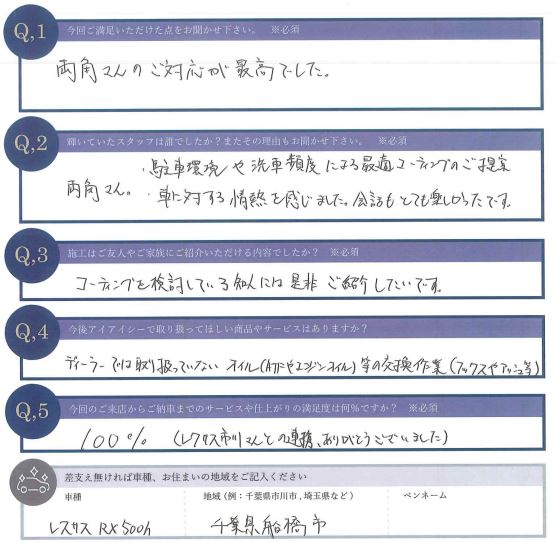 Q,1 今回ご満足いただけた点をお聞かせ下さい。 ※必須
両角さんのご対応が最高でした。
Q,2 輝いていたスタッフは誰でしたか?またその理由もお聞かせ下さい。 ※必須
・駐車環境や洗車頻度による最適コーティングのご提案
両角さん。 ・車に対する情熱を感じました。会話もとても楽しかったです。
Q,3 施工はご友人やご家族にご紹介いただける内容でしたか? ※必須
コーティングを検討している知人には是非ご紹介したいです。
Q,4 今後アイアイシーで取り扱ってほしい商品やサービスはありますか?
ディーラーでは取り扱っていないオイル(ATFやエンジンオイル)等の交換作業(ワックスやアッシュ等)
Q,5 今回のご来店からご納車までのサービスや仕上がりの満足度は何%ですか? ※必須
100% (レクサス市川さんとの連携、ありがとうございました)
差支え無ければ車種、お住まいの地域をご記入ください
車種 地域 (例:千葉県市川市,埼玉県など) ペンネーム
レクサス RX500h 千葉県船橋市